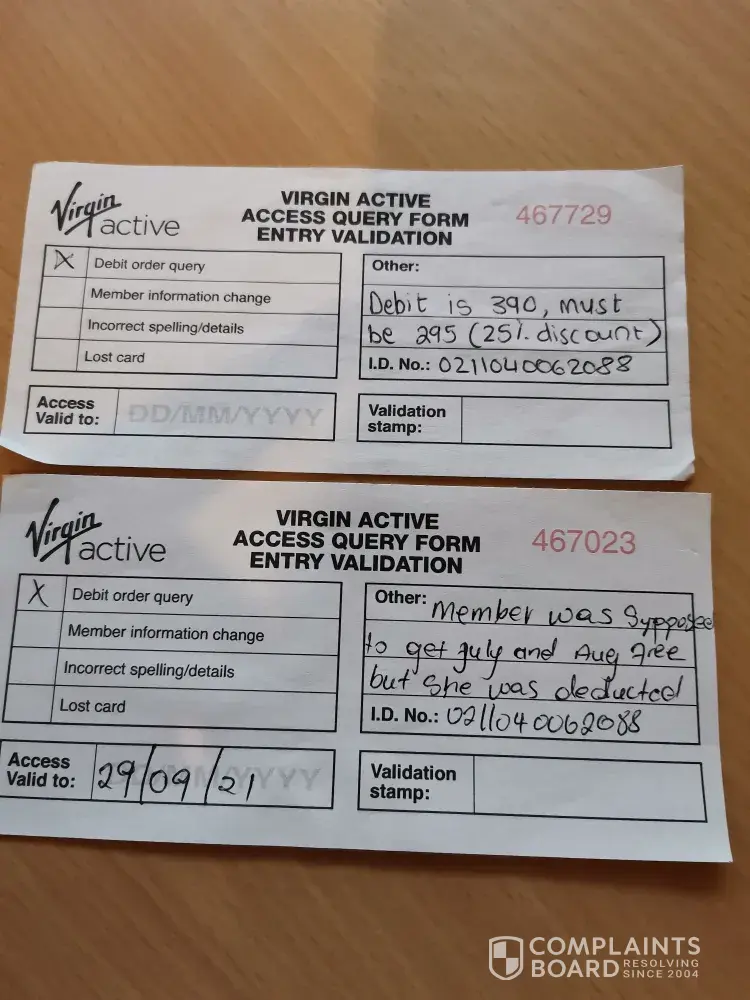 Virgin active
VIRGIN ACTIVE
ACCESS QUERY FORM
ENTRY VALIDATION
467729
X Debit order query
Member information change
Incorrect spelling/details
Lost card
Other:
Debit is 390, must
be 295 (25% discount)
I.D. No.: 0211040062088
Access
Valid to: DD/MM/YYYY
Validation
stamp:
Virgin active
VIRGIN ACTIVE
ACCESS QUERY FORM
ENTRY VALIDATION
467023
X Debit order query
Member information change
Incorrect spelling/details
Lost card
Other: Member was Supposed
to get July and Aug Free
but She was deducted
I.D. No.: 0211040062088
Access
Valid to: 29/09/21
Validation
stamp:
COMPLAINTS
BOARD RESOLVING
SINCE 2004